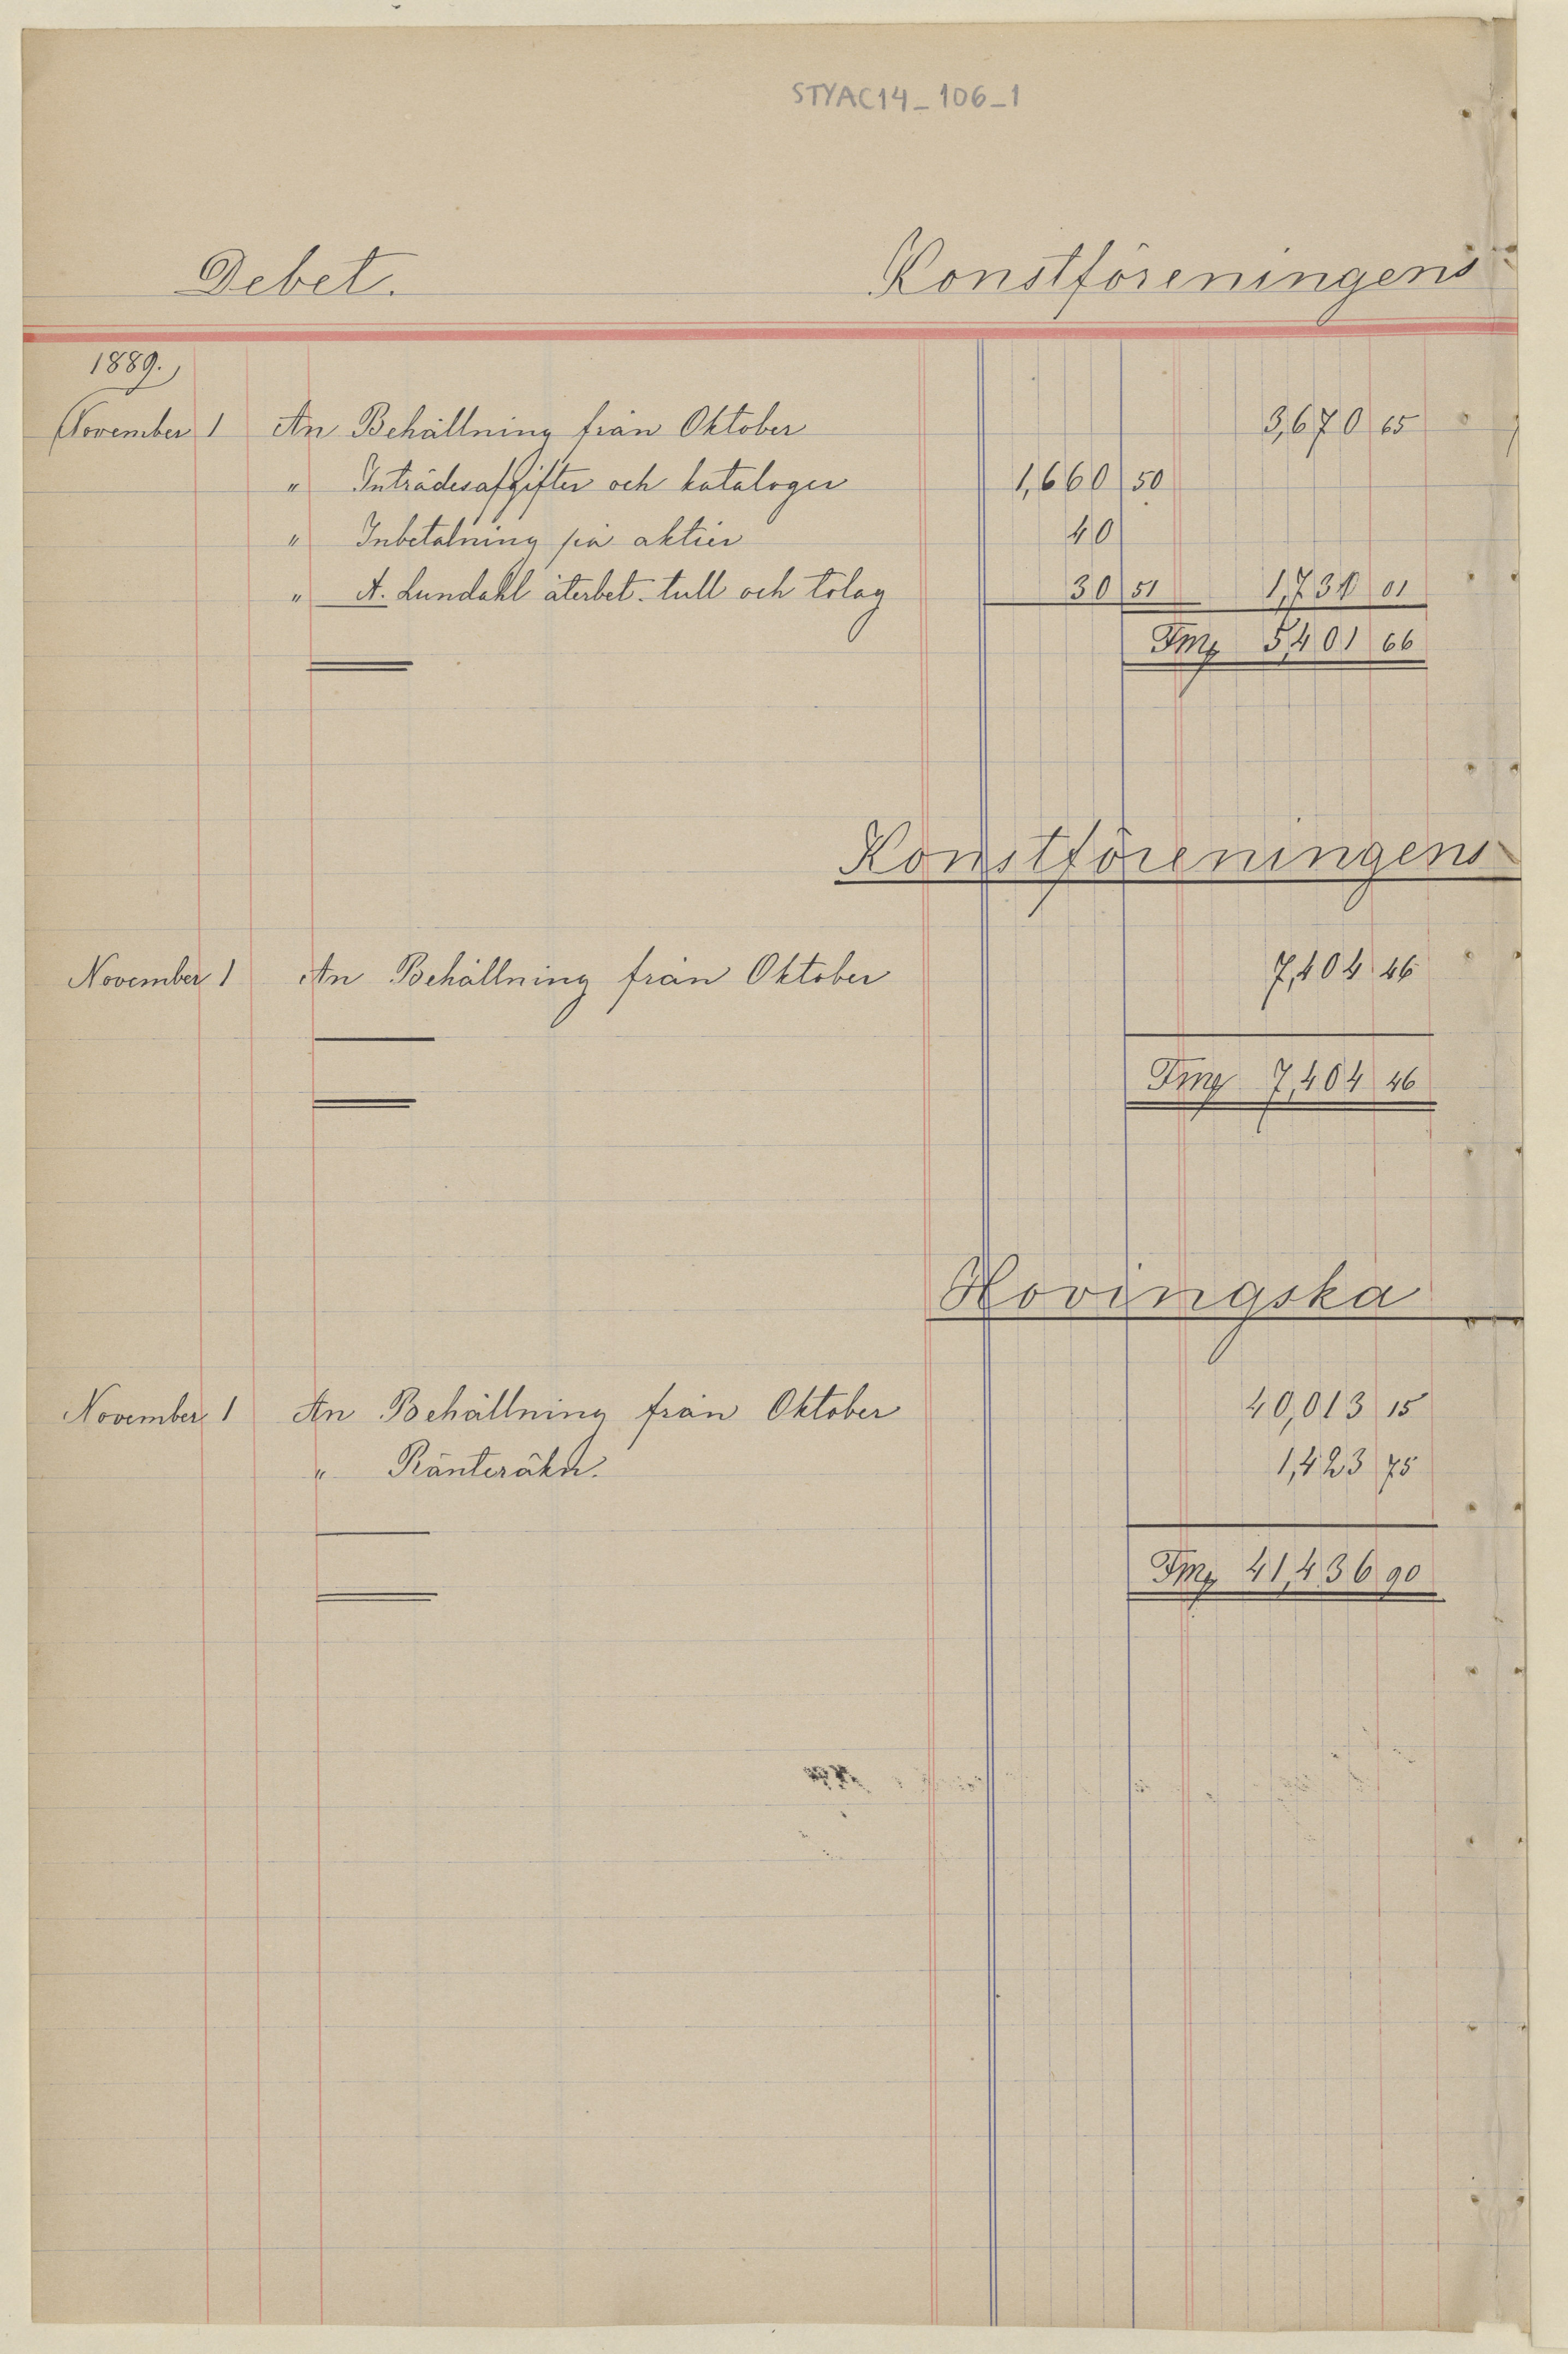 STYAC14_106_1
Debet. Konstföreningens
1889.
November 1 An Behållning från Oktober 3,670 65
" Inträdesafgifter och kataloger 1,660 50
" Inbetalning på aktier 40
" A. Lundahl återbet. tull och tolag 30 51 1,731 01
Fmg 5,401 66
Konstföreningens
November 1 An Behållning från Oktober 7,404 46
Fmg 7,404 46
Hovingska
November 1 An Behållning från Oktober 40,013 15
" Ränteräkn. 1,423 75
Fmg 41,436 90